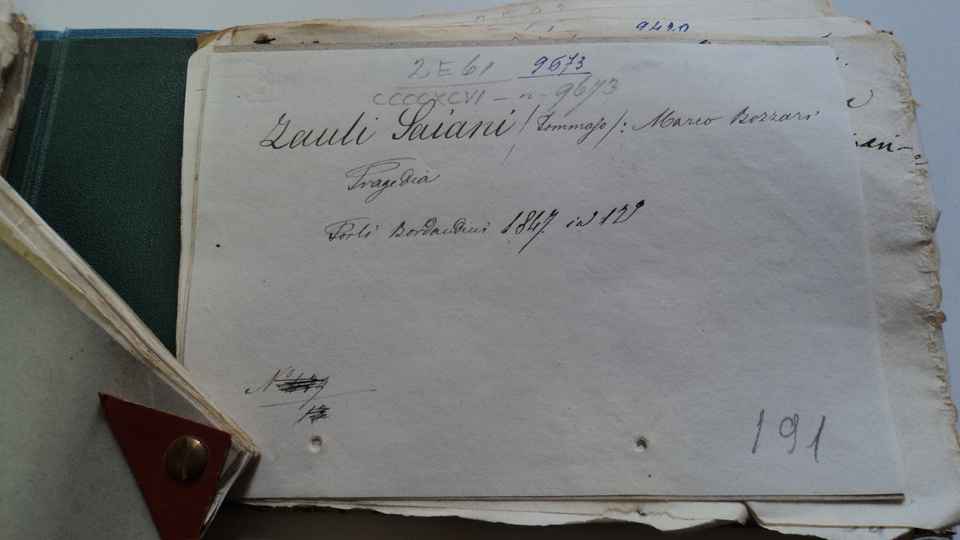 9420
2E61 9673
CCCCXCVI - n - 9673
Zauli Saiani (Tommaso): Marco Bozzari
Tragedia
Forlì Bordandini 1847. in 12º
Nº
191